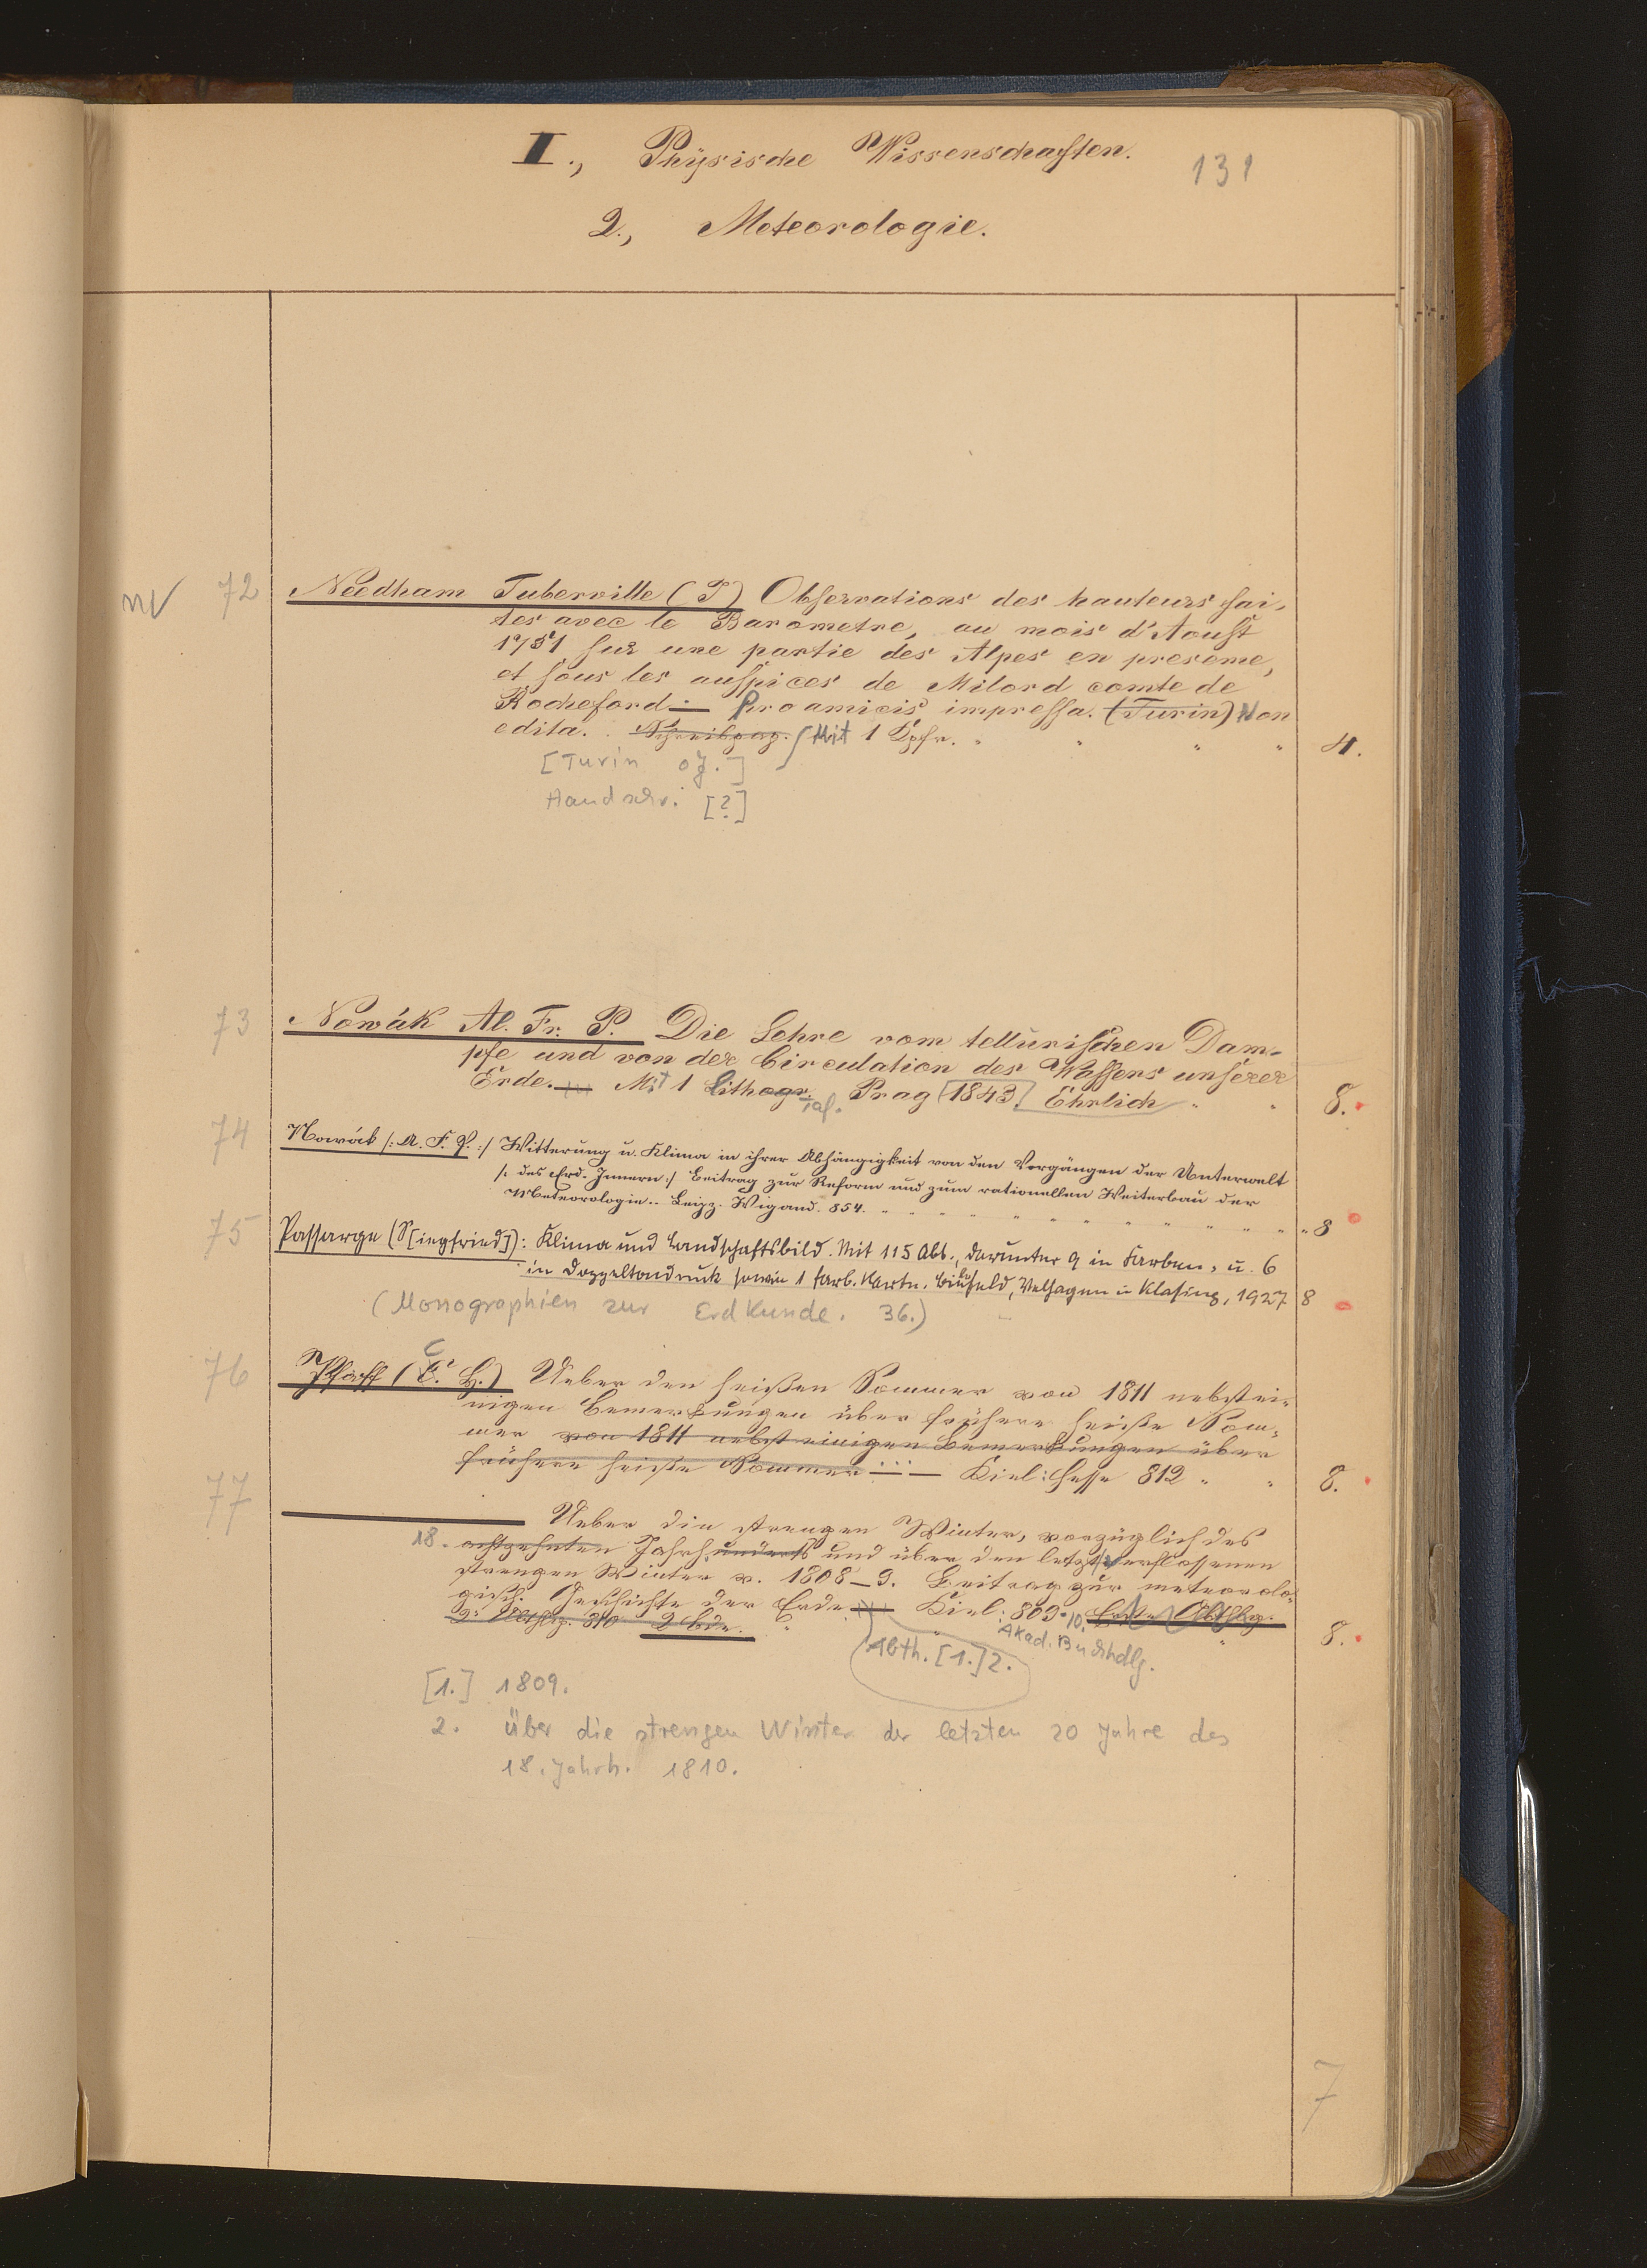 II., Physische Wissenschaften.
131
2., Meteorologie.
72 Needham Tuberville (T) Obſervations des hauteurs fai-
tes avec le Barometre, au mois d'Aouſt
1751 ſur une partie des Alpes en presence,
et ſous les auſpices de Milord comte de
Rocheford — Pro amicis impreſſa. (Turin) Non
edita. Schreibpap. Mit 1 Kpfr. " " " " 4.
[Turin oJ.]
Handschr. [?]
73 Nowák Al. Fr. P. Die Lehre vom telluriſchen Dam-
pfe und von der Circulation des Waſſers unſerer
Erde. — Mit 1 Lithogr. Taf. Prag [1843] Ehrlich " " 8.
74 Nowák /: A. F. P. :/ Witterung u. Klima in ihrer Abhängigkeit von den Vorgängen der Unterwelt
/: des Erd-Innern :/ Beitrag zur Reform und zum rationellen Weiterbau der
Meteorologie.. Leipz. Wigand. 854. " " " " 8
75 Passarge (S[iegfried]): Klima und Landschaftsbild. Mit 115 Abb., darunter 9 in Farben, u. 6
in Doppeltondruck sowie 1 farb. Karte. Bielefeld, Velhagen u Klasing, 1927 8
(Monographien zur Erdkunde. 36.)
76 Pfaff (C. H.) Ueber den heißen Sommer von 1811 nebst ei-
nigen Bemerkungen über frühere heiße Som-
mer von 1811 nebst einigen Bemerkungen über
frühere heiße Sommer — Kiel: Hesse 812 " " 8.
77 — Ueber die strengen Winter, vorzüglich des
18. achtzehnten Jahrhunderts und über den letzt verflossenen
strengen Winter v. 1808–9. Beitrag zur meteorolo-
gisch. Geschichte der Erde — Kiel: 809-10. Erste Abthlg.
2: Abthlg. 810 2 Bde. " " " 8.
Akad. Buchhdlg.
Abth. [1.] 2.
[1.] 1809.
2. Über die strengen Winter der letzten 20 Jahre des
18. Jahrh. 1810.
7